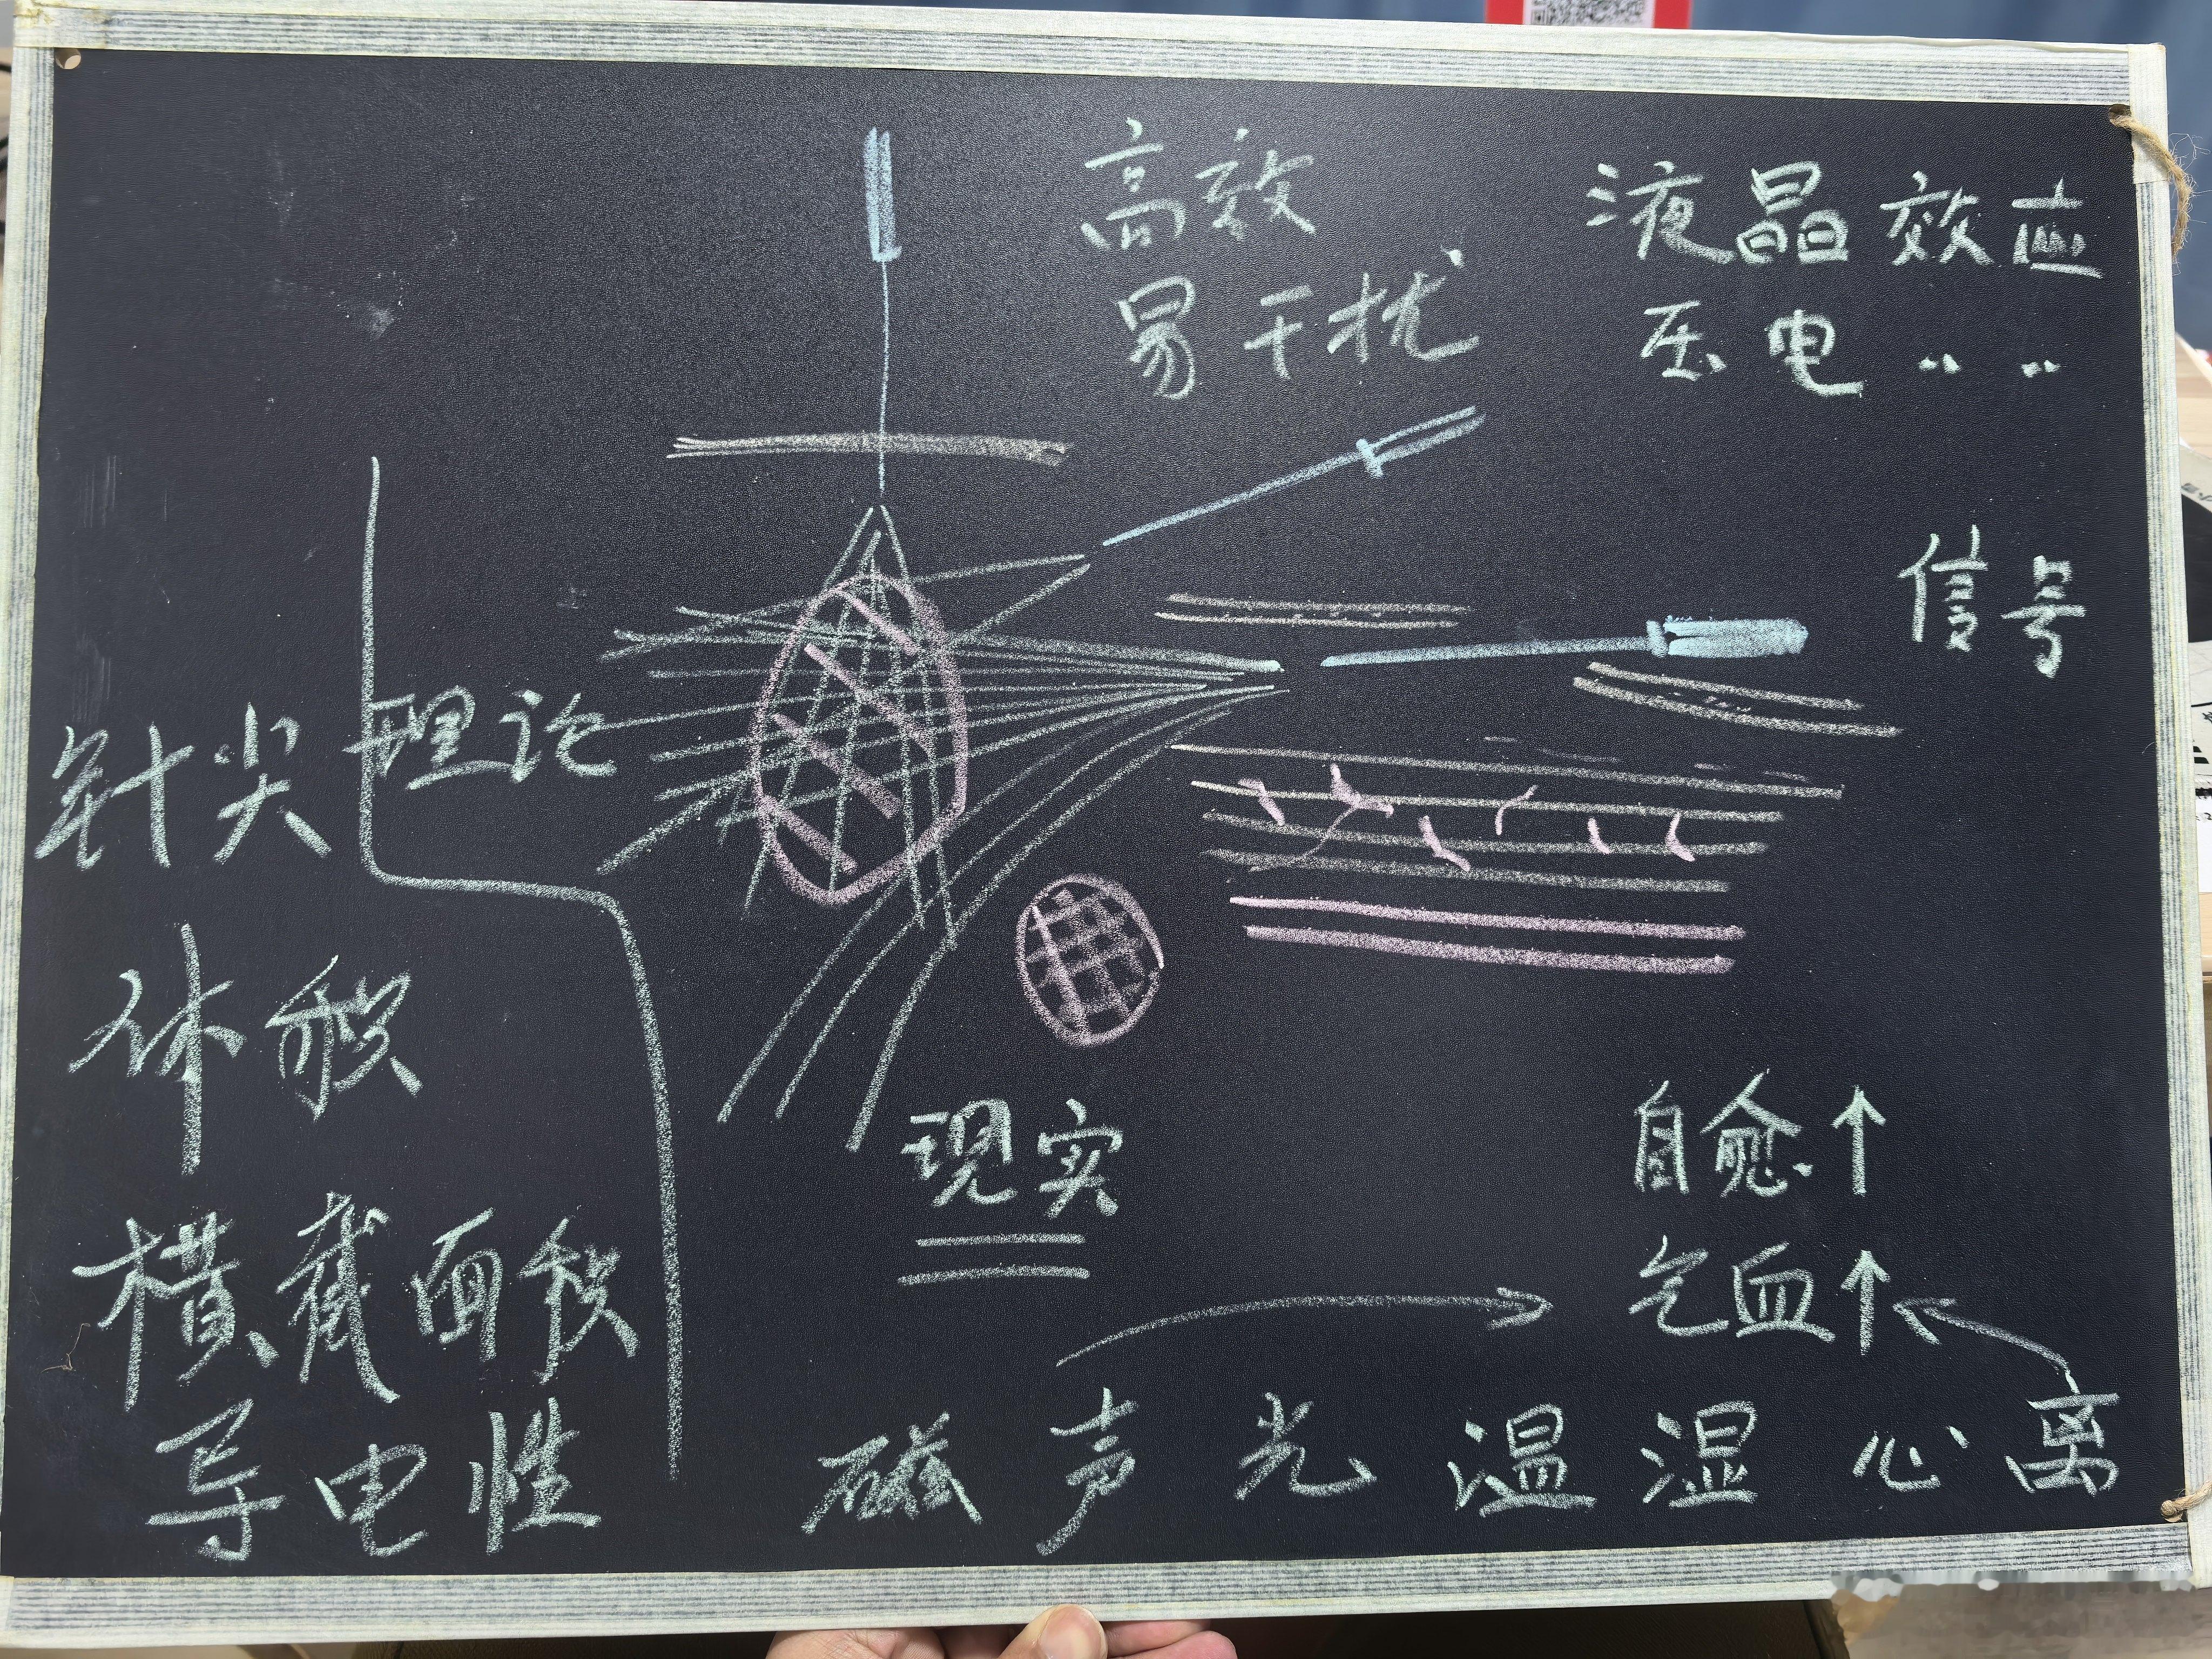 高效
易干扰
液晶效应
压电 〃 〃
信号
针尖
理论
体积
横截面积
导电性
现实
自愈↑
气血↑
磁 声 光 温 湿 心 离